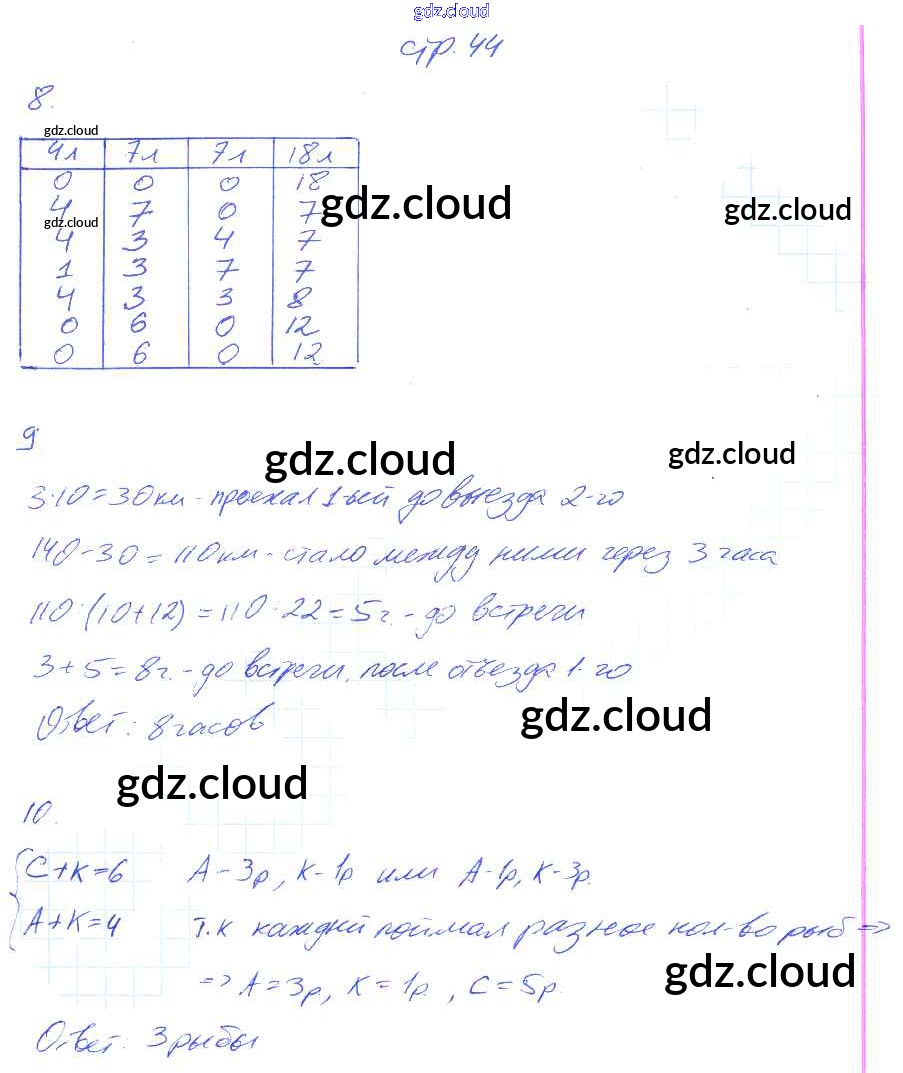 gdz.cloud
стр. 44
8.
gdz.cloud
4л 7л 7л 18л
0 0 0 18
4 7 0 7
gdz.cloud
gdz.cloud
gdz.cloud
4 3 4 7
1 3 7 7
4 3 3 8
0 6 0 12
0 6 0 12
9
gdz.cloud
gdz.cloud
3·10=30км - проехал 1-ый до выезда 2-го
140-30=110км - стало между ними через 3 часа
110:(10+12)=110:22=5ч. - до встречи
3+5=8ч. - до встречи, после отъезда 1-го
Ответ: 8 часов
gdz.cloud
gdz.cloud
10.
С+К=6 А-3р, К-1р или А-1р, К-3р.
А+К=4 Т.к каждый поймал разное кол-во рыб =>
gdz.cloud
=> А=3р, К=1р, С=5р.
Ответ: 3 рыбы